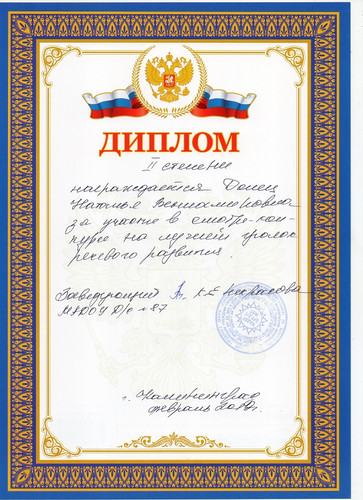 ДИПЛОМ
II степени
награждается Донец
Наталья Вениаминовна
за участие в смотре-кон-
курсе на лучший уголок
речевого развития.
Заведующий К.Е. Некрасова
МАДОУ д/с №87
г. Калининград
февраль